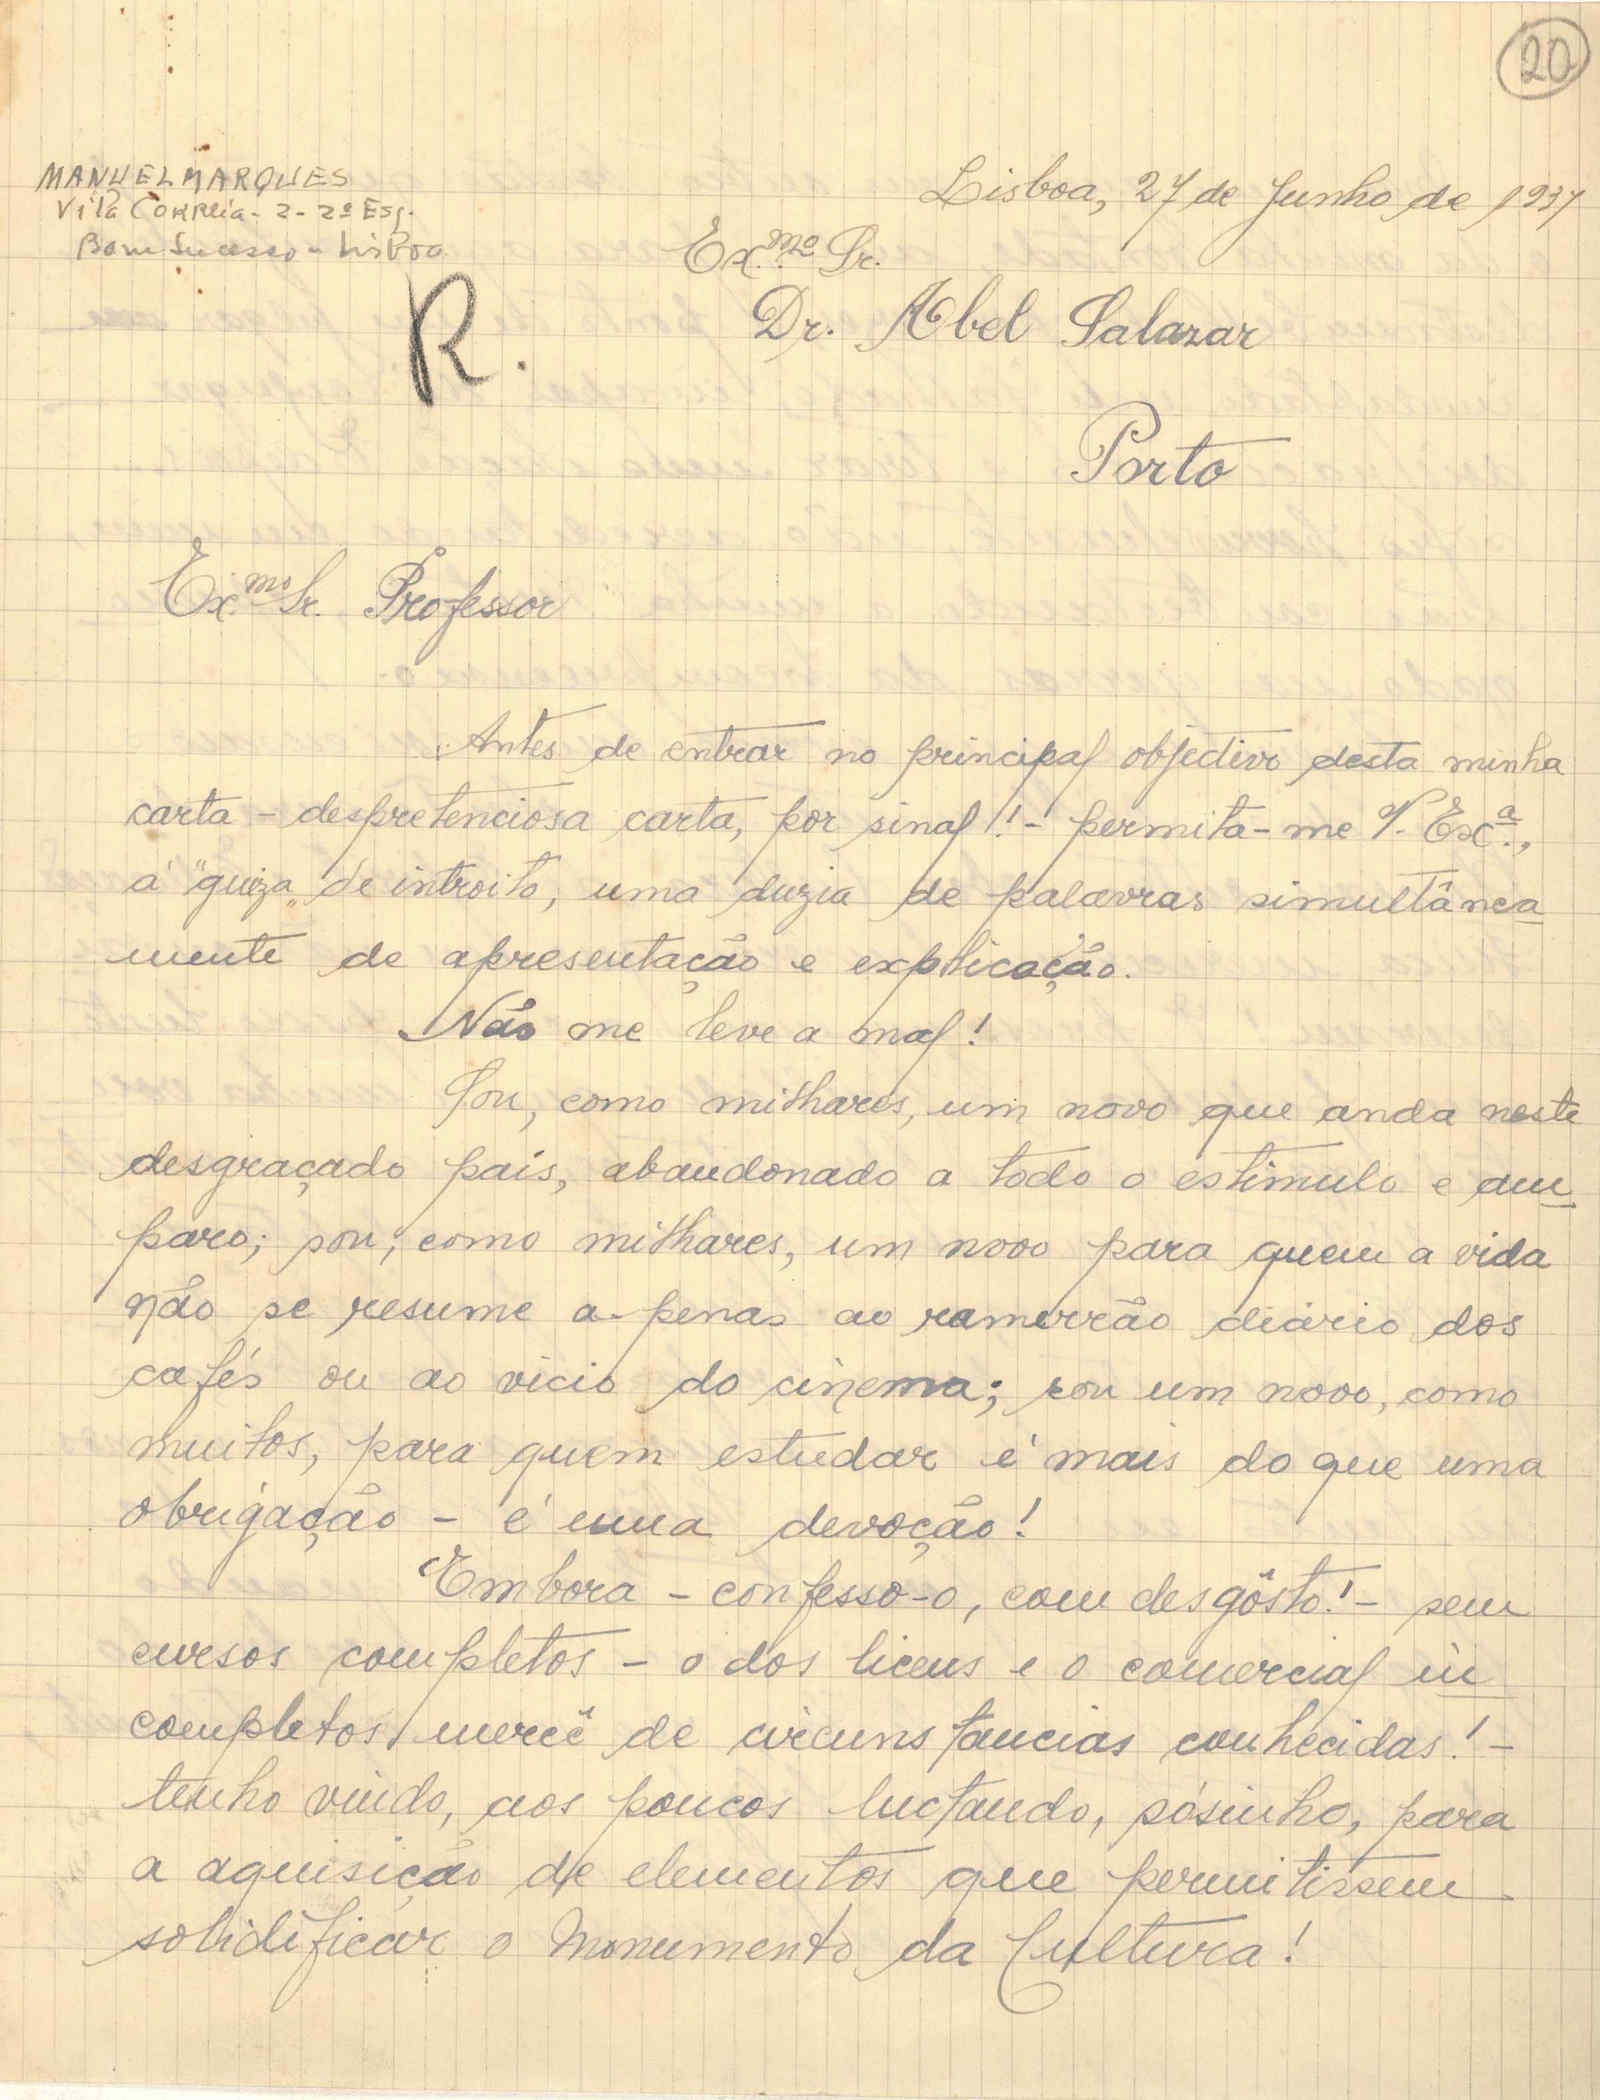 20
MANUEL MARQUES
Vila Correia - 2 - 2º Esq.
Bom Sucesso - Lisboa
Lisboa, 27 de Junho de 1937
Ex.mo Sr.
Dr. Abel Salazar
R.
Porto
Ex.mo Sr. Professor
Antes de entrar no principal objectivo desta minha
carta - despretenciosa carta, por sinal! - permita-me V. Exª.,
á "guiza" de introito, uma duzia de palavras simultânea
mente de apresentação e explicação.
Não me leve a mal!
Sou, como milhares, um novo que anda neste
desgraçado país, abandonado a todo o estimulo e am
paro; sou, como milhares, um novo para quem a vida
não se resume a-penas ao ramerrão diário dos
cafés ou ao vicio do cinema; sou um novo, como
muitos, para quem estudar é mais do que uma
obrigação - é uma devoção!
Embora - confesso-o, com desgôsto! - sem
cursos completos - o dos liceus e o comercial in
completos, mercê de circunstancias conhecidas! -
tenho vindo, aos poucos luctando, sósinho, para
a aquisição de elementos que permitissem
solidificar o Monumento da Cultura!